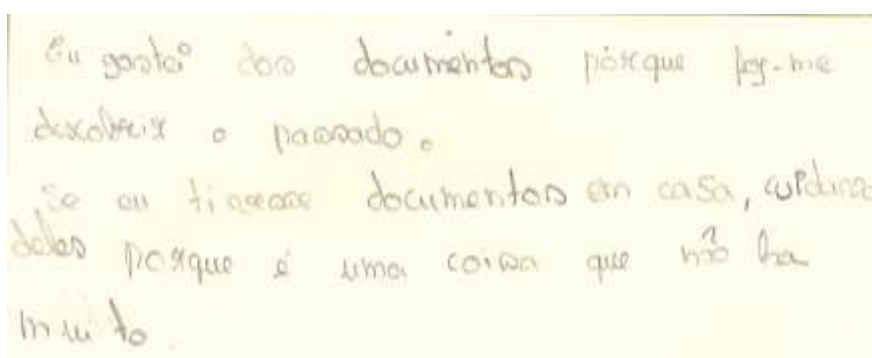 Eu gostei dos documentos porque fez-me
descobrir o passado.
Se eu tivesse documentos em casa, cuidava
deles porque é uma coisa que não ha
muito